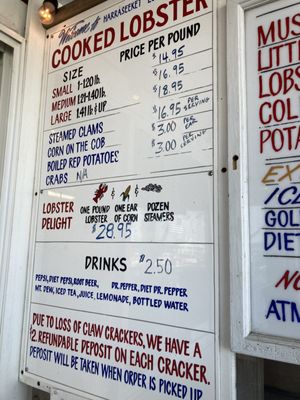 Welcome to HARRASEEKET L
COOKED LOBSTER
PRICE PER POUND
SIZE
SMALL 1-1.20 lb $14.95
MEDIUM 1.21-1.40 lb $16.95
LARGE 1.41 lb & UP $18.95
STEAMED CLAMS $16.95 PER SERVING
CORN ON THE COB $3.00 PER EAR
BOILED RED POTATOES $3.00 PER SERVING
CRABS N/A
LOBSTER DELIGHT
ONE POUND LOBSTER & ONE EAR OF CORN DOZEN STEAMERS
$28.95
DRINKS $2.50
PEPSI, DIET PEPSI, ROOT BEER, DR. PEPPER, DIET DR. PEPPER
MT. DEW, ICED TEA, JUICE, LEMONADE, BOTTLED WATER
DUE TO LOSS OF CLAW CRACKERS, WE HAVE A
$2. REFUNDABLE DEPOSIT ON EACH CRACKER.
DEPOSIT WILL BE TAKEN WHEN ORDER IS PICKED UP
MUS
LITTL
LOBS
COL
POTA
EX
ICE
GOL
DIE
NO
ATM